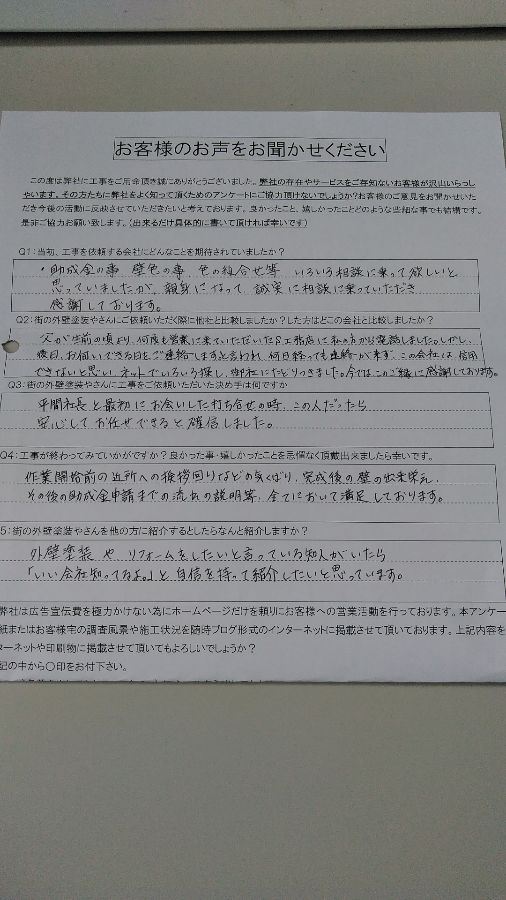 お客様のお声をお聞かせください
この度は弊社に工事をご用命頂き誠にありがとうございました。弊社の存在やサービスをご存知ないお客様が沢山いらっし
ゃいます。その方たちに弊社をよく知って頂くためのアンケートにご協力頂けないでしょうか?お客様のご意見をお聞かせいた
だき今後の活動に反映させていただきたいと考えております。良かったこと、嬉しかったことどのような些細な事でも結構です。
是非ご協力お願い致します。(出来るだけ具体的に書いて頂ければ幸いです)
Q1:当初、工事を依頼する会社にどんなことを期待されていましたか?
・助成金の事 壁色の事、色の組合せ等、いろいろ相談に乗って欲しいと
思っていましたが、親身になって、誠実に相談に乗っていただき
感謝しております。
Q2:街の外壁塗装やさんにご依頼いただく際に他社と比較しましたか?した方はどこの会社と比較しましたか?
夫が生前の頃より、何度も営業に来ていただいてた工務店に私の方から電話しました。しかし、
後日、お伺いできる日をご連絡しますと言われ、何日経っても連絡が来ず、この会社は、信用
できないと思い、ネットでいろいろ探し、御社にたどりつきました。今では、このご縁に感謝しております。
Q3:街の外壁塗装やさんに工事をご依頼いただいた決め手は何ですか
平間社長と最初にお会いした打ち合せの時、この人だったら
安心してお任せできると確信しました。
Q4:工事が終わってみていかがですか?良かった事・嬉しかったことを忌憚なく頂戴出来ましたら幸いです。
作業開始前の近所への挨拶回りなどの気くばり、完成後の壁の出来栄え、
その後の助成金申請までの流れの説明等、全てにおいて満足しております。
5:街の外壁塗装やさんを他の方に紹介するとしたらなんと紹介しますか?
外壁塗装や リフォームをしたいと言っている知人がいたら
「いい会社知ってるよ。」と自信を持って紹介したいと思っています。
弊社は広告宣伝費を極力かけない為にホームページだけを頼りにお客様への営業活動を行っております。本アンケー
紙またはお客様宅の調査風景や施工状況を随時ブログ形式のインターネットに掲載させて頂いております。上記内容を
ターネットや印刷物に掲載させて頂いてもよろしいでしょうか?
記の中から○印をお付下さい。